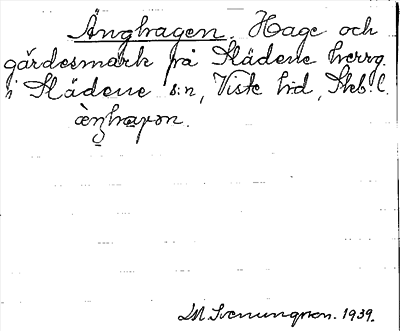 Änghagen. Hage och
gärdesmark på Slädene herrg.
i Slädene s:n, Viste hd, Skb. l.
LM Svenungson. 1939.